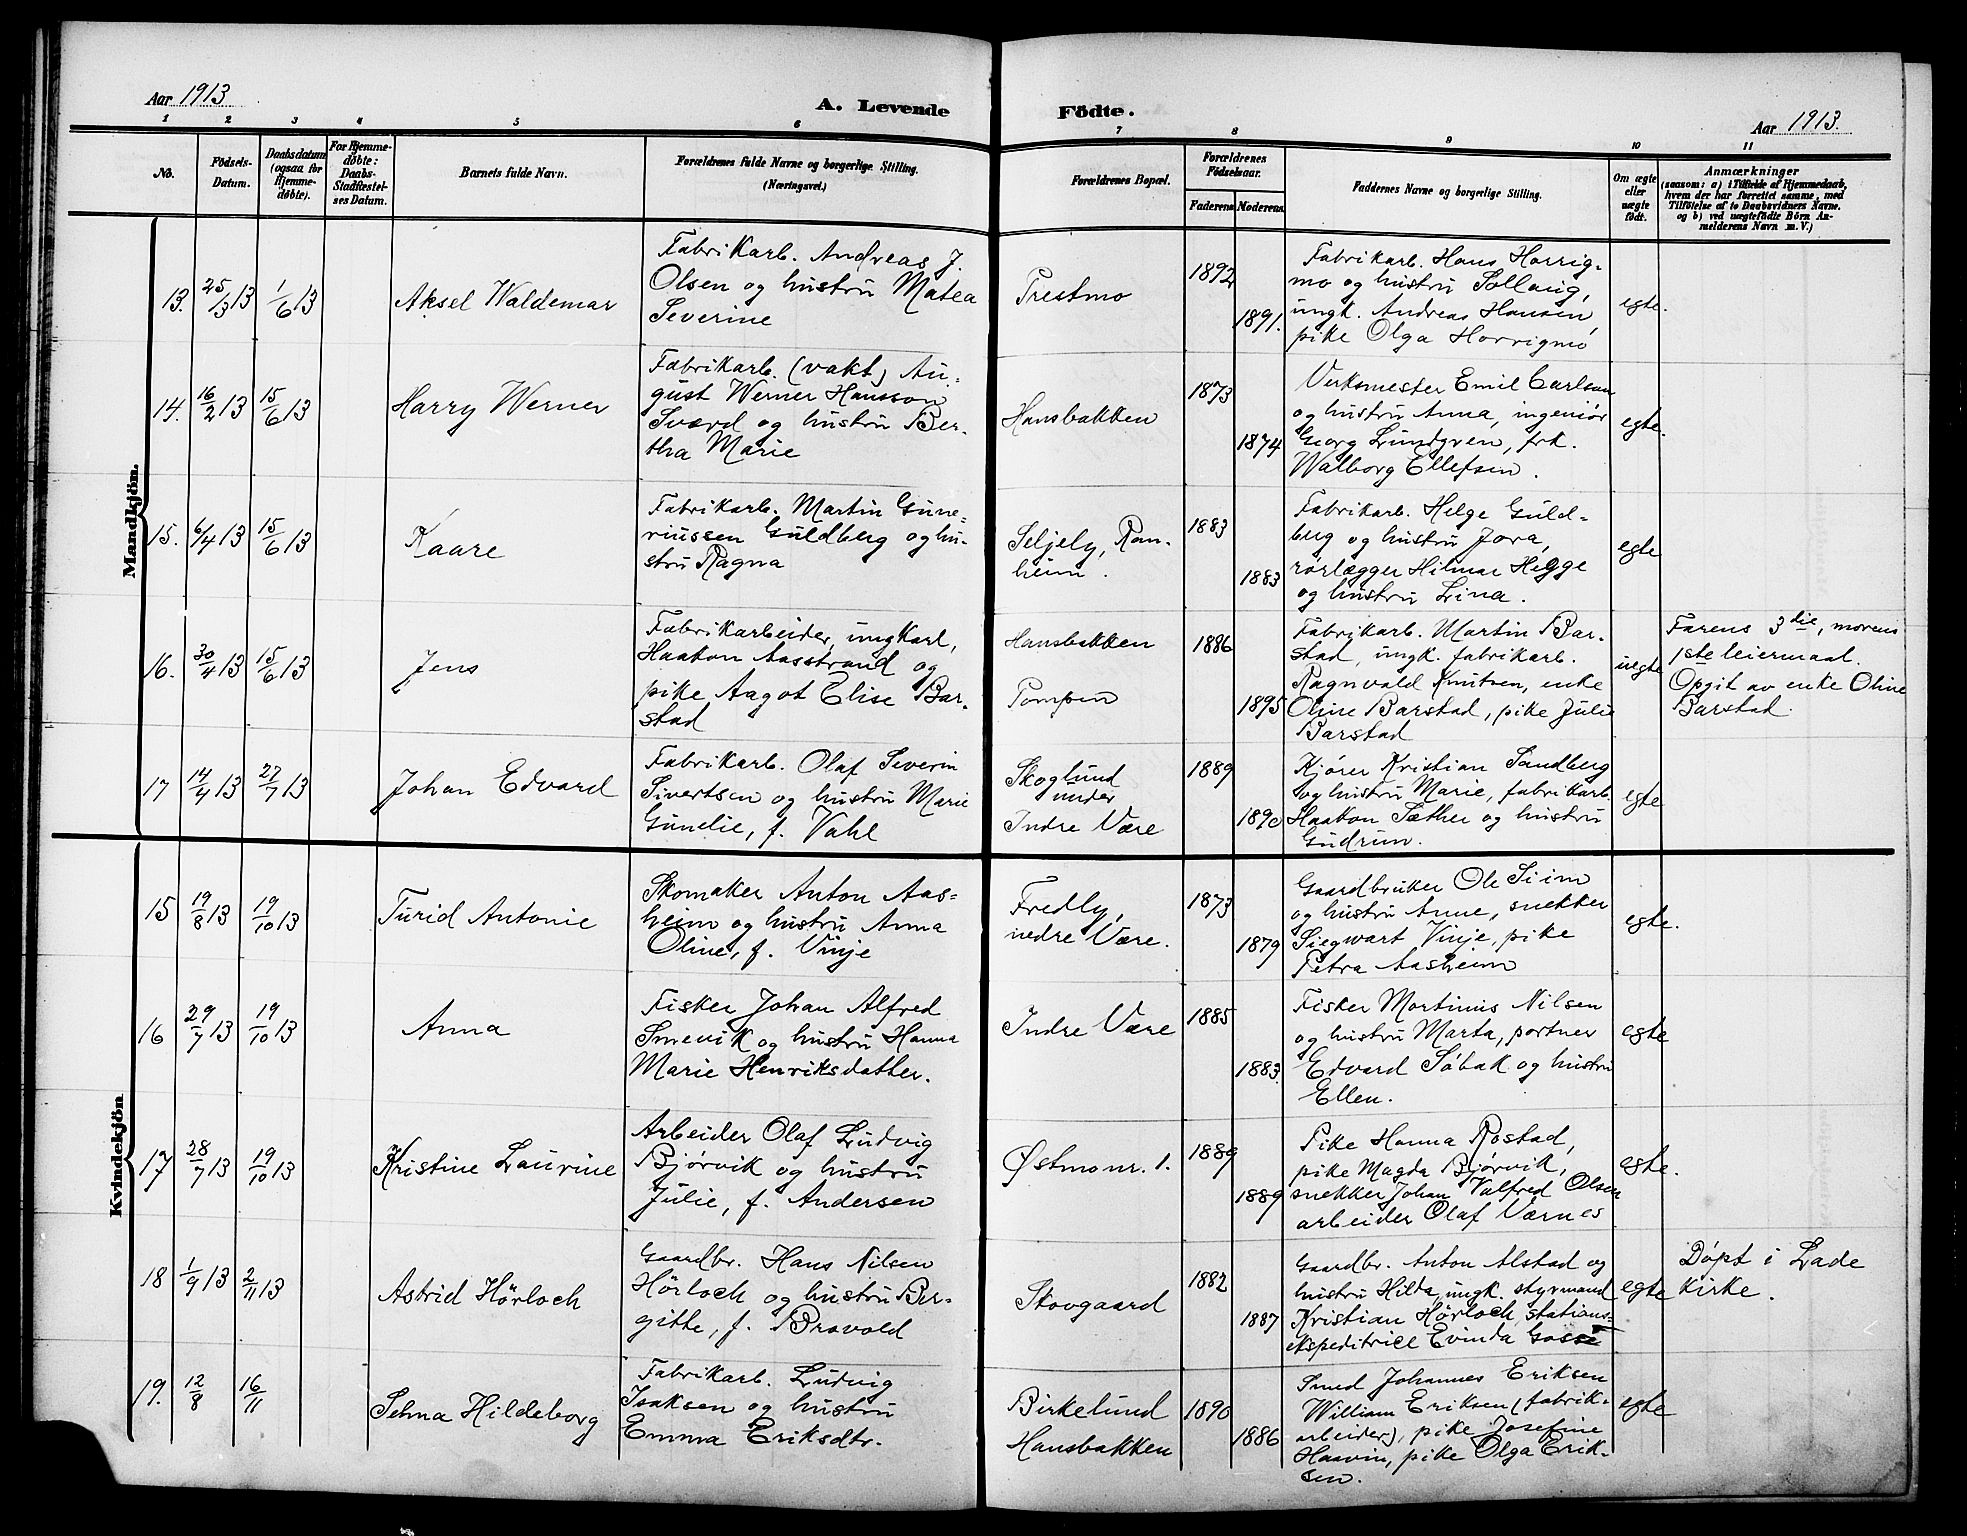 Aar 1913
A. Levende Födte.
Aar 1913.
1 2 3 4 5 6 7 8 9 10 11
No.
Födsels-
Datum.
Daabsdatum
(ogsaa for
Hjemme-
døbte).
For Hjemme-
døbte:
Daabs-
Stadfæstel-
ses Datum.
Barnets fulde Navn.
Forældrenes fulde Navne og borgerlige Stilling.
(Næringsvei.)
Forældrenes Bopæl.
Forældrenes
Födselsaar.
Faderens
Moderens
Faddernes Navne og borgerlige Stilling.
Om ægte
eller
uægte
födt.
Anmærkninger
(saasom: a) i Tilfælde af Hjemmedaab,
hvem der har forrettet samme, med
Tilföielse af to Daabsvidners Navne.
og b) ved uægtefödte Börn An-
melderens Navn m. V.)
Mandkjön.
13. 25/3 13 1/6 13
Aksel Waldemar
Fabrikarb. Andreas J.
Olsen og hustru Matea
Severine
Prestmo
1892
1891.
Fabrikarb. Hans Horrig-
mo og hustru Sollaug,
ungk. Andreas Hansen,
pike Olga Horrigmo
egte.
14. 16/2 13 15/6 13
Harry Werner
Fabrikarb. (vakt) Au-
gust Werner Hansson
Sværd og hustru Ber-
tha Marie
Hansbakken
1873
1874
Verksmester Emil Carlson
og hustru Anna, ingeniør
Georg Lundgren, frk.
Walborg Ellefsen.
egte.
15. 6/4 13 15/6 13
Kaare
Fabrikarb. Martin Gune-
riussen Guldberg og hu-
stru Ragna
Seljely, Ran-
heim.
1883
1883
Fabrikarb. Helge Guld-
berg og hustru Jora,
rørlægger Hilmar Hegge
og hustru Lina.
egte
16. 30/4 13 15/6 13
Jens
Fabrikarbeider, ungkarl,
Haakon Aasstrand og
pike Aagot Elise Bar-
stad
Hansbakken
Pompen
1886
1895
Fabrikarb. Martin Bar-
stad, ungk. fabrikarb.
Ragnvald Knutsen, enke
Oline Barstad, pike Julie
Barstad
uegte
Farens 3die, morens
1ste leiermaal.
Opgit av enke Oline
Barstad.
17 14/4 13 27/7 13
Johan Edvard
Fabrikarb. Olaf Severin
Sivertsen og hustru Marie
Gunelie, f. Vahl
Skoglund
under
Indre Være
1889
1890
Kjører Kristian Sandberg
og hustru Marie, fabrikarb.
Haakon Sæther og hustru
Gudrun.
egte
Kvindekjön
15 19/8 13 19/10 13
Turid Antonie
Skomaker Anton Aas-
heim og hustru Anna
Oline, f. Vinje
Fredly,
nedre Være.
1873
1879
Gaardbruker Ole Siim
og hustru Anne, snekker
Siegwart Vinje, pike
Petra Aasheim
egte.
16 29/7 13 19/10 13
Anna
Fisker Johan Alfred
Smevik og hustru Hanna
Marie Henriksdatter.
Indre Være
1885
1883.
Fisker Mortinus Nilsen
og hustru Marta, portner
Edvard Søbak og hustru
Ellen.
egte
17 28/7 13 19/10 13
Kristine Laurine
Arbeider Olaf Ludvig
Bjørvik og hustru
Julie, f. Andersen
Østmo nr. 1.
1889
1889
Pike Hanna Rostad,
pike Magda Bjørvik,
snekker Johan Valfred Olsen
arbeider Olaf Værnes
egte.
18 1/9 13 2/11 13
Astrid Hörloch
Gaardbr. Hans Nilsen
Hörloch og hustru Ber-
gitte, f. Bravold
Skovgaard
1882
1887
Gaardbr. Anton Alstad og
hustru Hilda, ungk. styrmand
Kristian Hørloch, stations-
ekspeditrice Evinda
egte
Døpt i Lade
kirke.
19. 12/8 16/11
Selma Hildeborg
Fabrikarb. Ludvig
Isaksen og hustru
Emma Eriksdtr.
Birkelund
Hansbakken
1890
1886
Smed Johannes Eriksen
William Eriksen (fabrik-
arbeider), pike Josefine
Haavin, pike Olga Erik-
sen.
egte